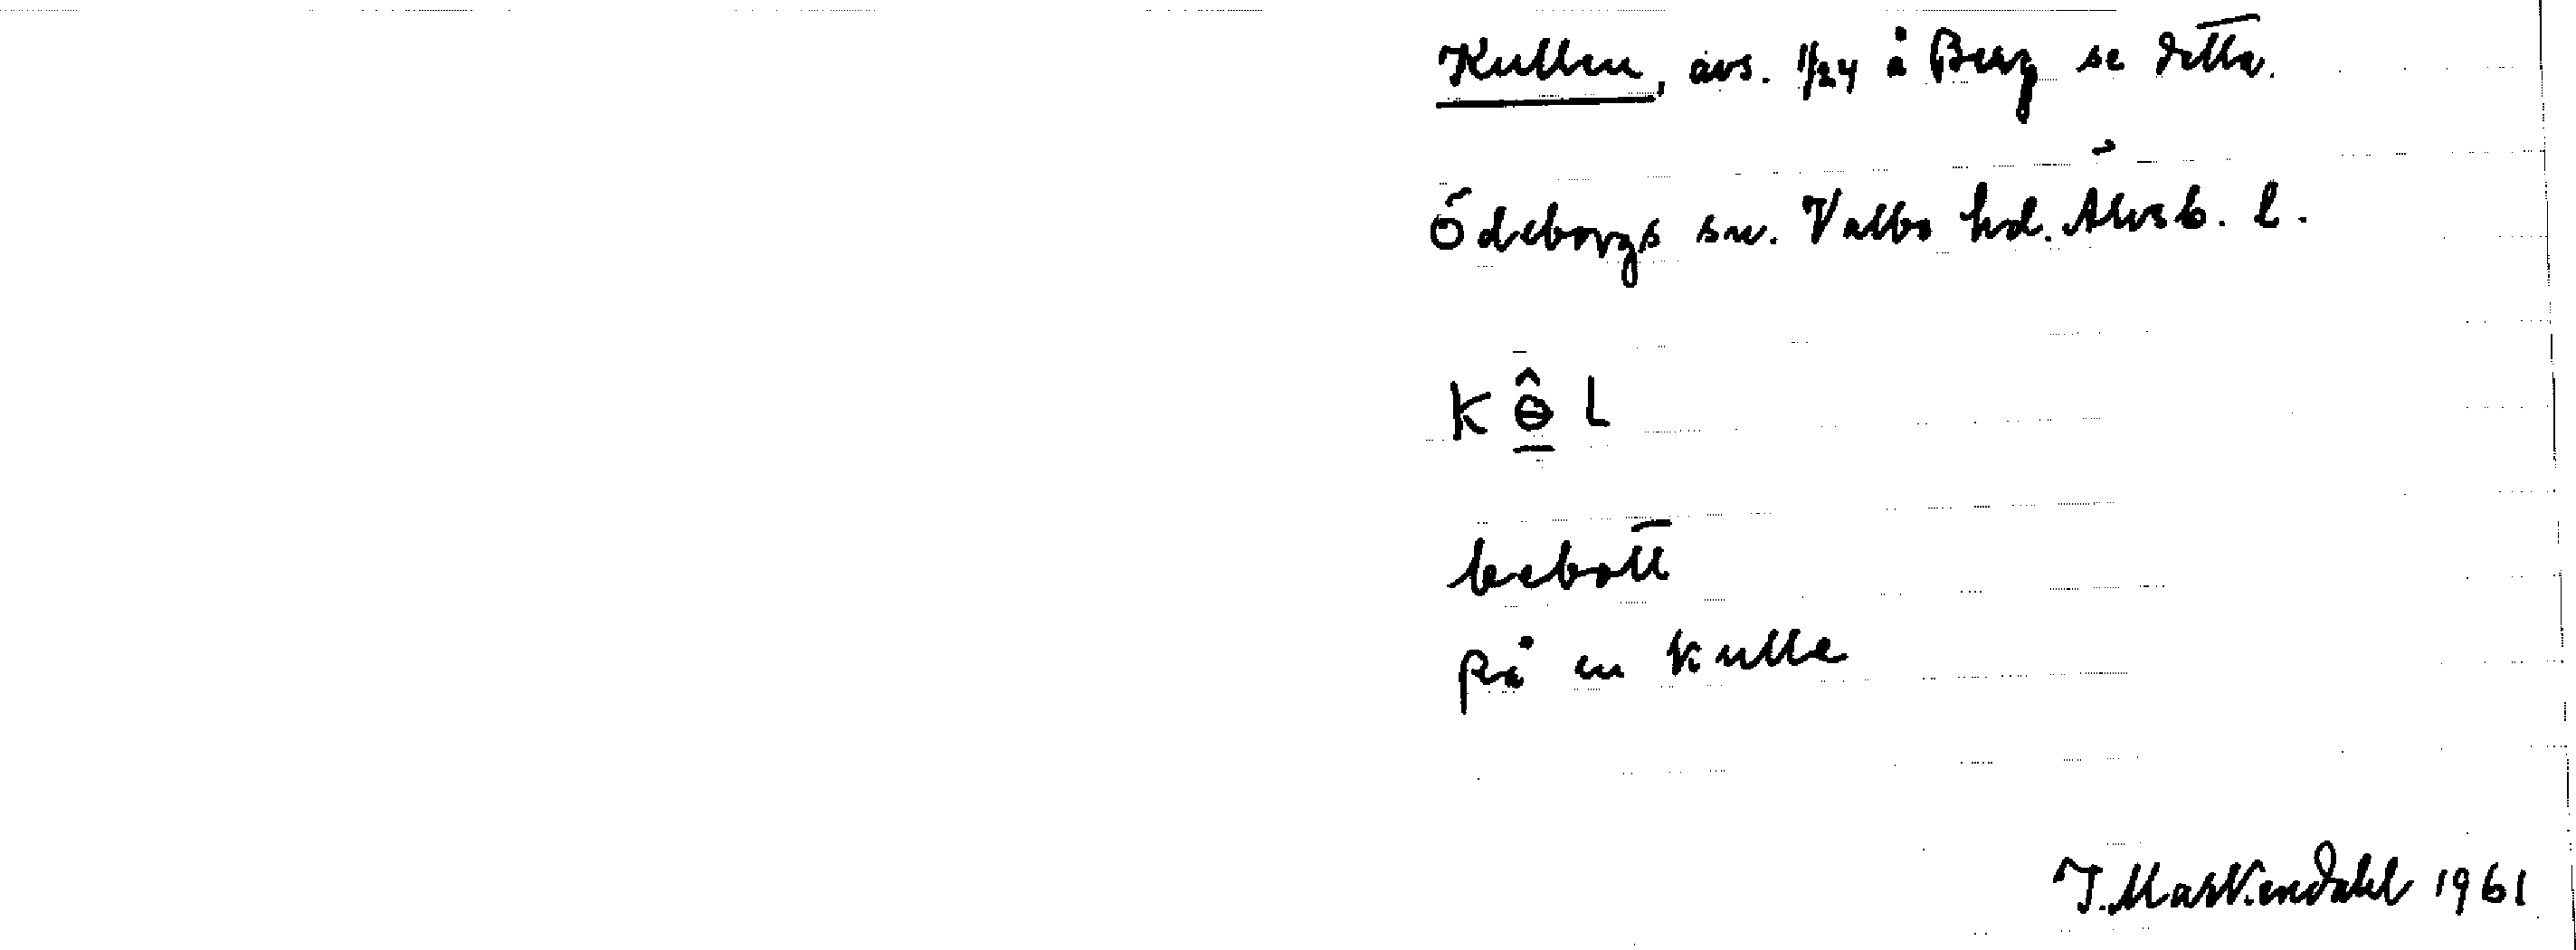 Kullen, avs. 1/24 å Berg se detta.
Ödeborgs sn. Valbo hd. Älvsb. l.
K ɵ̲̂ L
bebott
på en kulle
1961